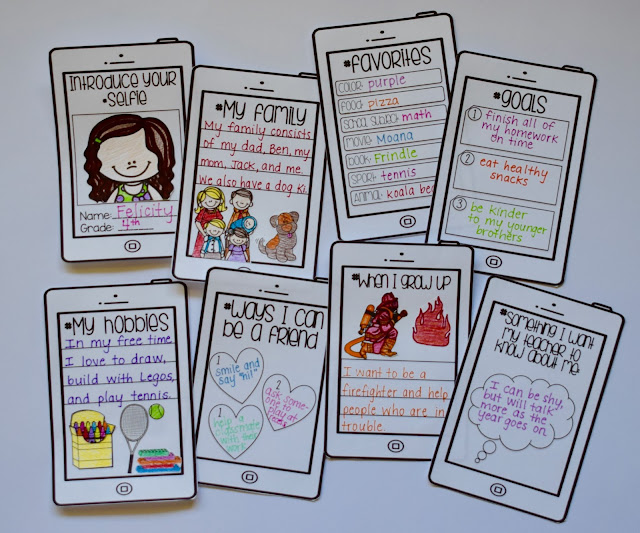 INTRODUCE YOUR
#SELFIE
Name: Felicity
Grade: 4th
#MY FAMILY
My family consists
of my dad, Ben, my
mom, Jack, and me.
We also have a dog Ki.
#FAVORITES
COLOR: purple
FOOD: pizza
SCHOOL SUBJECT: math
MOVIE: Moana
BOOK: Frindle
SPORT: tennis
ANIMAL: koala bea
#GOALS
1 finish all of
my homework
on time
2 eat healthy
snacks
3 be kinder
to my younger
brothers
#MY HOBBIES
In my free time,
I love to draw,
build with Legos,
and play tennis.
#WAYS I CAN
BE A FRIEND
1 smile and
say "hi!"
2 ask some-
one to
play at
recess
1 help a
classmate
with their
work
#WHEN I GROW UP
I want to be a
firefighter and help
people who are in
trouble.
#SOMETHING I WANT
MY TEACHER TO
KNOW ABOUT ME:
I can be shy,
but will talk
more as the
year goes on.